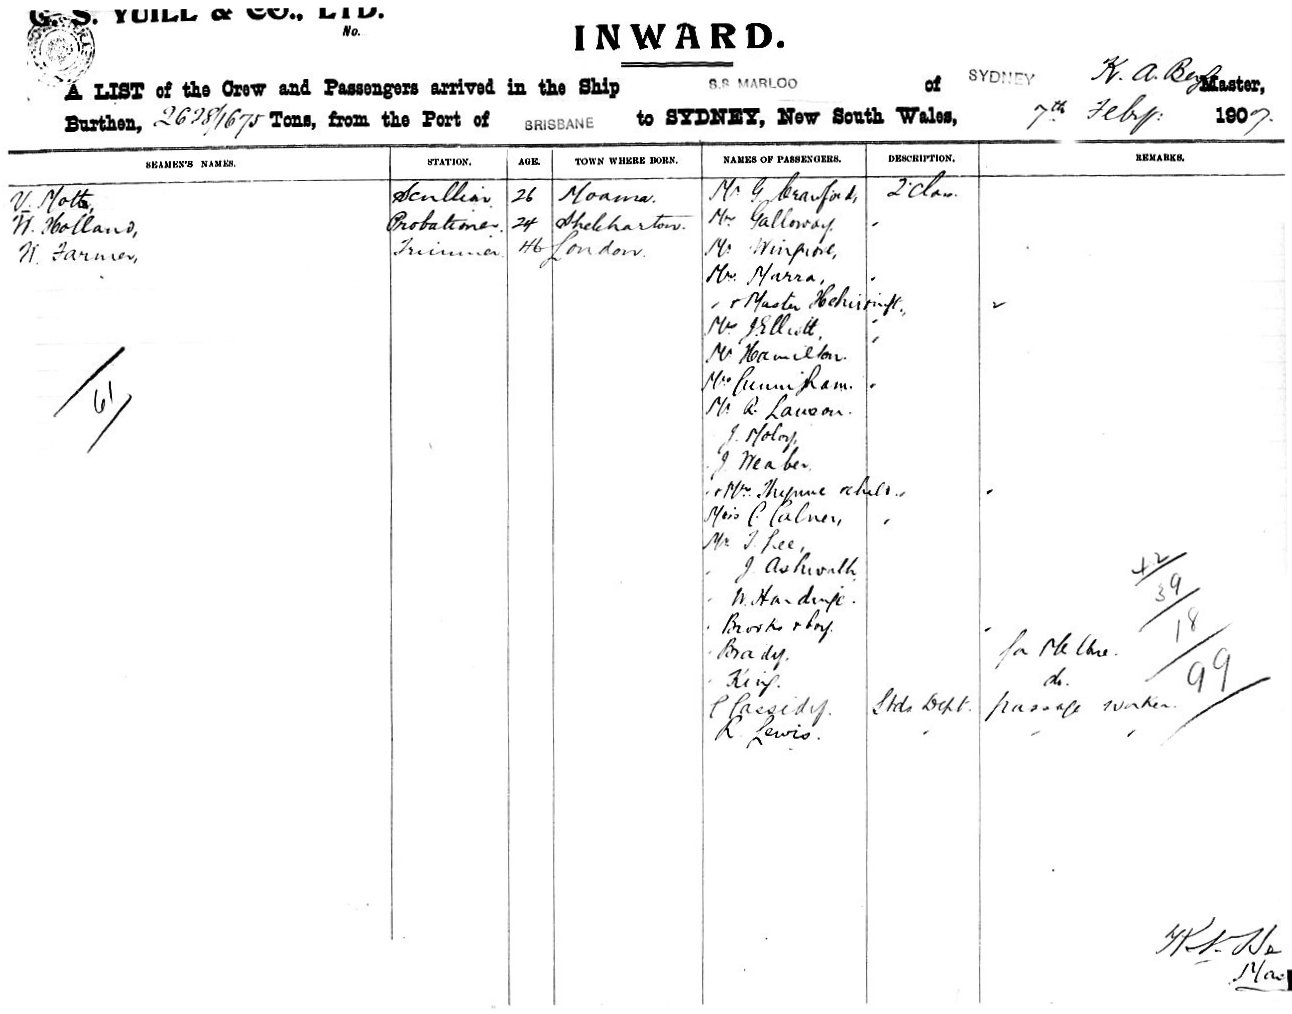 G. S. YUILL & CO., LTD.
No.
INWARD.
A LIST of the Crew and Passengers arrived in the Ship S.S MARLOO of SYDNEY K. A. Master,
Burthen, 2628/1675 Tons, from the Port of BRISBANE to SYDNEY, New South Wales, 7th Febry. 1907.
SEAMEN'S NAMES. STATION. AGE. TOWN WHERE BORN. NAMES OF PASSENGERS. DESCRIPTION. REMARKS.
V. Mott, Scullion 26 Moama. Mr G Crawford, 2 Class.
W. Holland, Probationer. 24 Mrs Galloway. "
W. Farmer, Trimmer 46 London. Mr Wingrove,
Mrs Marra, "
" & Master "
Mrs J Elliott, "
Mr Hamilton. "
Mrs Cunningham. "
Mr A. Lawson.
J. Moloy,
J Weaber
" & Mrs Thynne & child. " "
Miss C. "
Mr T. Lee,
" J. Ashworth
" W. Hardinge.
" Brooks & boy. "
" Brady. for Melbne.
" King. do.
C Cassidy. Stds Dept. passage worker.
R. Lewis. " " "
61
42
39
18
99